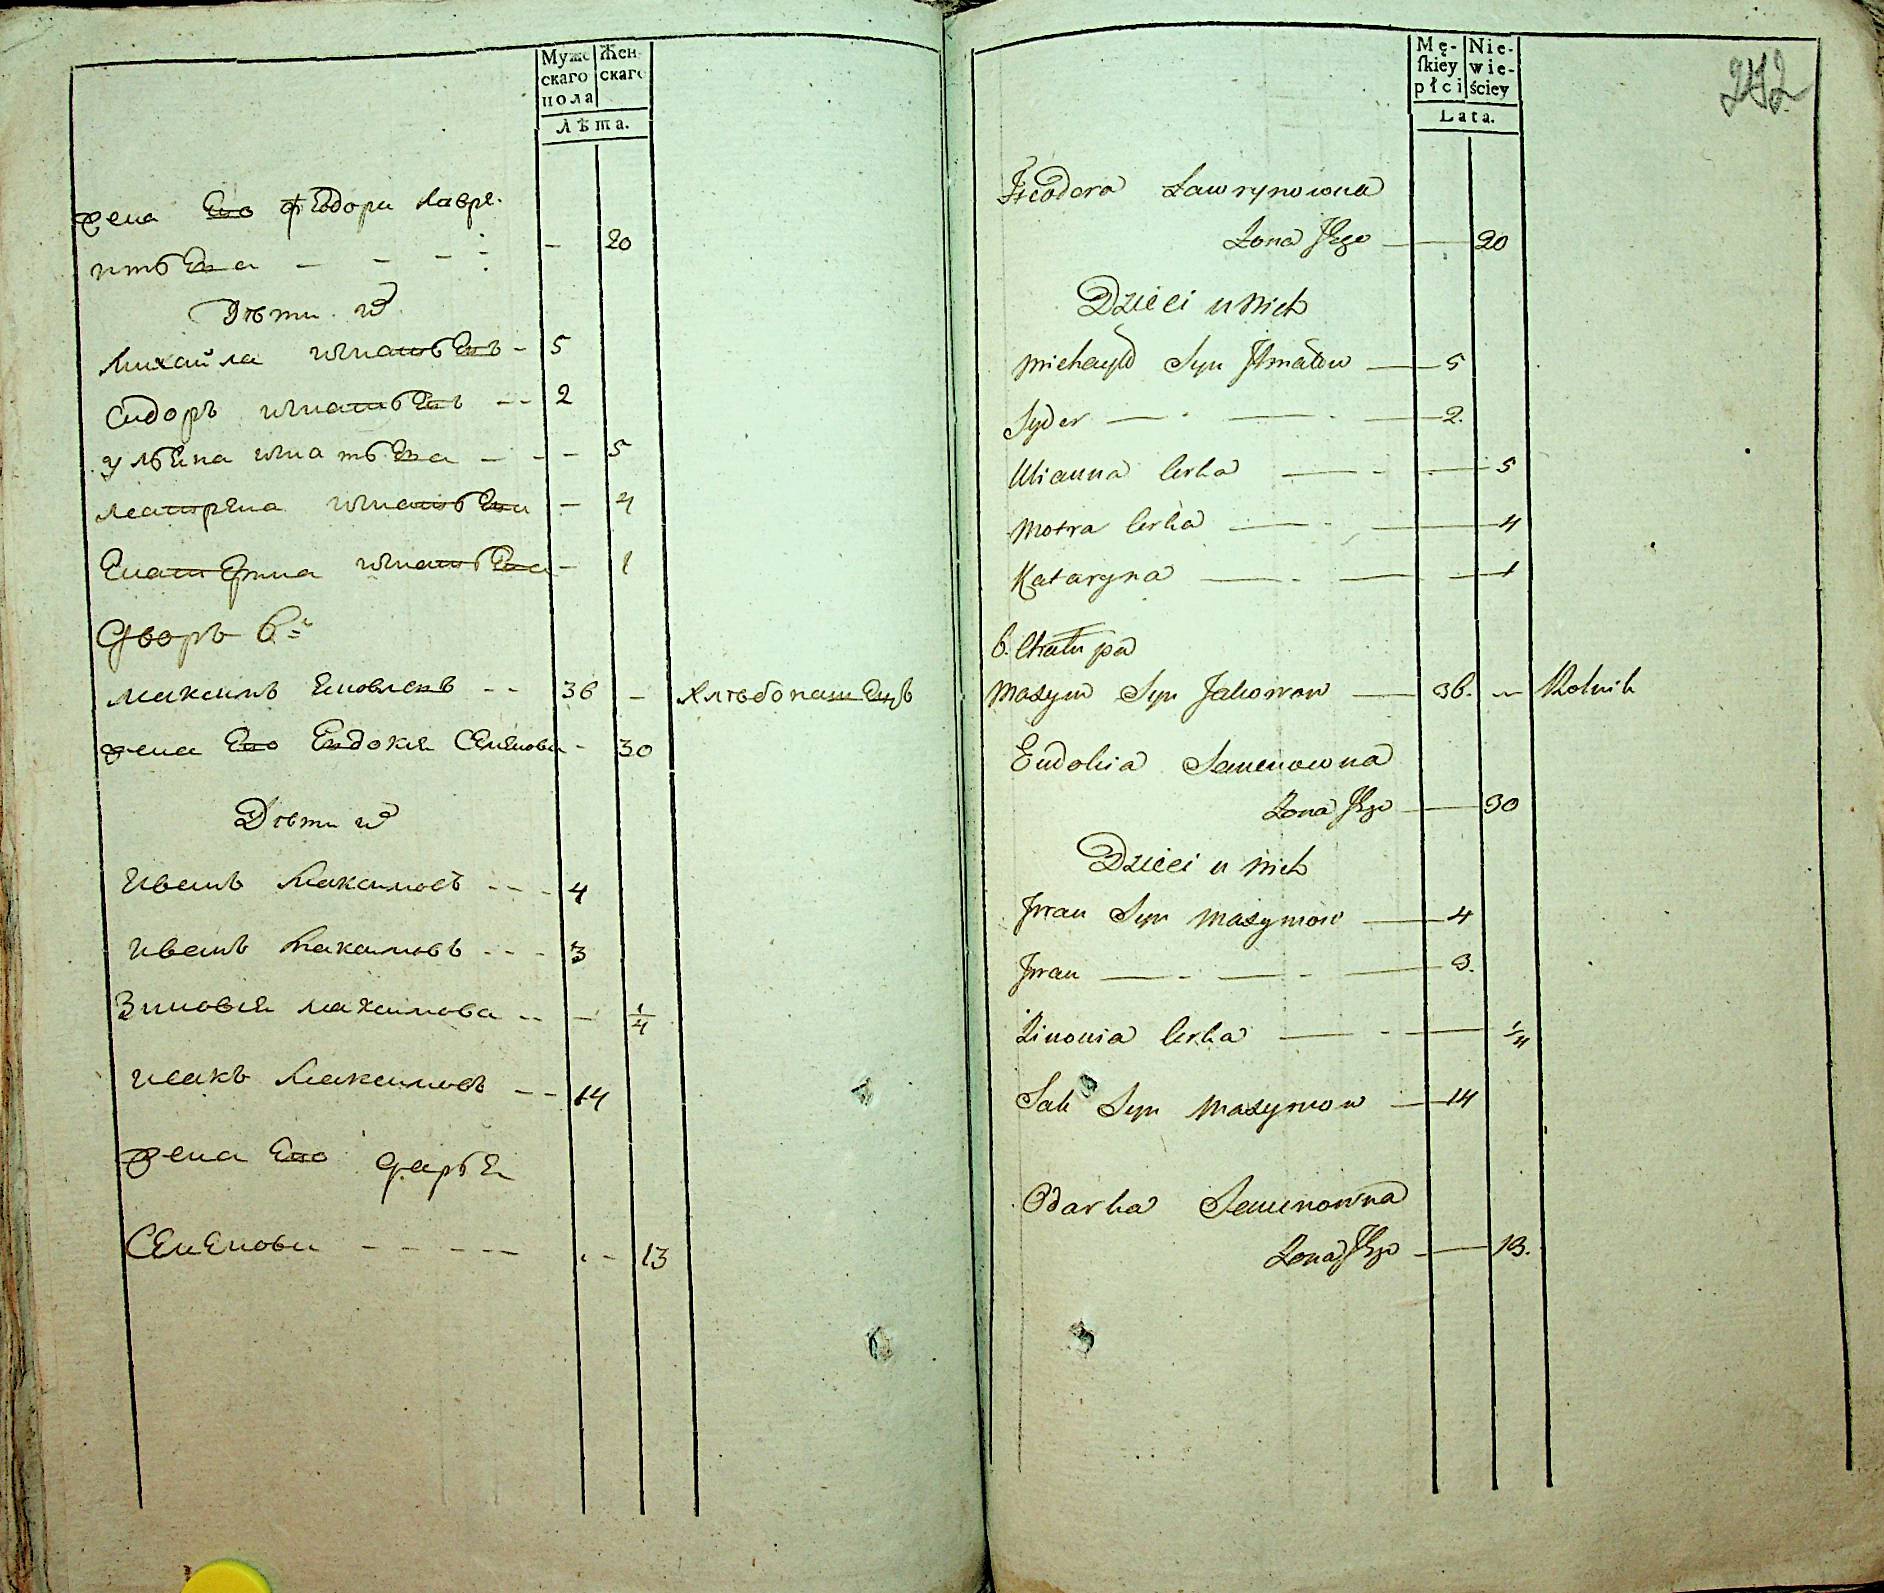 Муже
скаго
пола
Жен
скаго
Лѣта.
жена Его Федора Лавре.
нтьева — 20
Дѣти ихъ
Михайла игнатьевъ 5
Сидоръ игнатьевъ 2
ульяна игнатьева 5
матрена игнатьева 4
Екатерина игнатьева 1
Дворъ 6й
максимъ яковлевъ 36 — хлѣбопашецъ
жена Его Евдокия Семенова 30
Дѣти ихъ
иванъ Максимовъ 4
иванъ Максимовъ 3
Зиновия максимова — 1/4
исакъ Максимовъ 14
жена Его дарья
Семенова 13
Mę-
ſkiey
płci
Nie-
wie-
ściey
Lata.
242
Fieodora Ławrynowna
Żona Jego 20
Dzieci u Nich
Michayło Syn Ihnatow 5
Sydor 2.
Ulianna Corka 5
Motra Corka 4
Kataryna 1
6. Chałupa
Maxym Syn Jakowow 36. — Rolnik
Eudokia Semenowna
Żona Jego 30
Dzieci u Nich
Iwan Syn Maxymow 4
Iwan 3.
Zinowia Corka 1/4
Sak Syn Maxymow 14
Odarka Semenowna
Żona Jego 13.